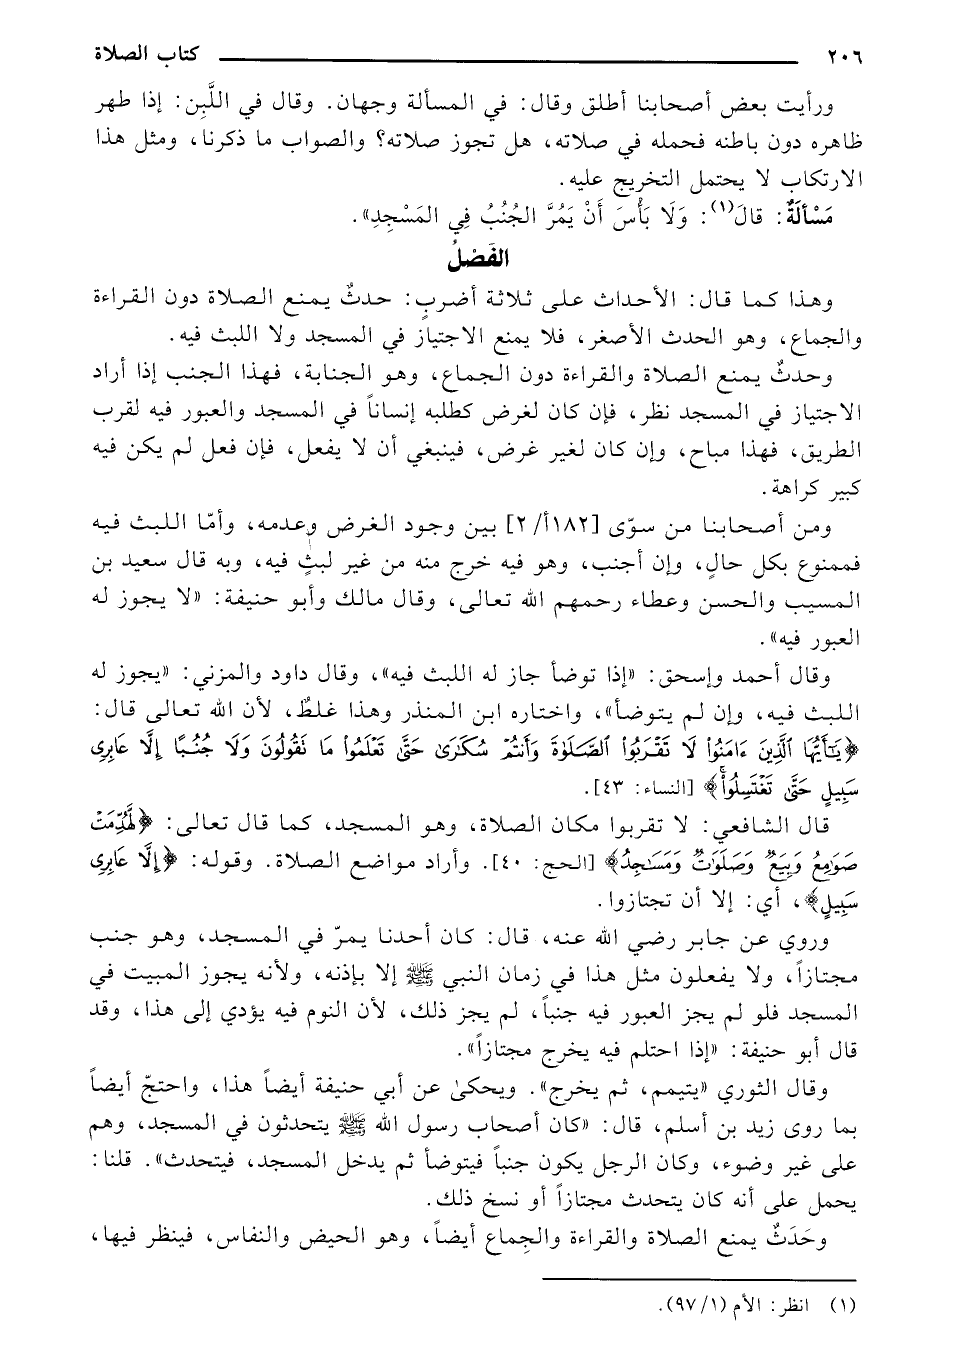 ٢٠٦ كتاب الصلاة
ورأيت بعض أصحابنا أطلق وقال: في المسألة وجهان. وقال في اللَّبِن: إذا طهر
ظاهره دون باطنه فحمله في صلاته، هل تجوز صلاته؟ والصواب ما ذكرنا، ومثل هذا
الارتكاب لا يحتمل التخريج عليه.
مَسْأَلَةٌ: قالَ(١): وَلَا بَأْسَ أَنْ يَمُرَّ الجُنُبُ فِي المَسْجِدِ».
الفَصْلُ
وهذا كما قال: الأحداث على ثلاثة أضربٍ: حدثٌ يمنع الصلاة دون القراءة
والجماع، وهو الحدث الأصغر، فلا يمنع الاجتياز في المسجد ولا اللبث فيه.
وحدثٌ يمنع الصلاة والقراءة دون الجماع، وهو الجنابة، فهذا الجنب إذا أراد
الاجتياز في المسجد نظر، فإن كان لغرض كطلبه إنساناً في المسجد والعبور فيه لقرب
الطريق، فهذا مباح، وإن كان لغير غرض، فينبغي أن لا يفعل، فإن فعل لم يكن فيه
كبير كراهة.
ومن أصحابنا من سوّى [١٨٢أ/ ٢] بين وجود الغرض وعدمه، وأمّا اللبث فيه
فممنوع بكل حالٍ، وإن أجنب، وهو فيه خرج منه من غير لبثٍ فيه، وبه قال سعيد بن
المسيب والحسن وعطاء رحمهم الله تعالى، وقال مالك وأبو حنيفة: «لا يجوز له
العبور فيه».
وقال أحمد وإسحق: «إذا توضأ جاز له اللبث فيه»، وقال داود والمزني: «يجوز له
اللبث فيه، وإن لم يتوضأ»، واختاره ابن المنذر وهذا غلطٌ، لأن الله تعالى قال:
﴿يَٰٓأَيُّهَا ٱلَّذِينَ ءَامَنُوا۟ لَا تَقْرَبُوا۟ ٱلصَّلَوٰةَ وَأَنتُمْ سُكَٰرَىٰ حَتَّىٰ تَعْلَمُوا۟ مَا تَقُولُونَ وَلَا جُنُبًا إِلَّا عَابِرِى
سَبِيلٍ حَتَّىٰ تَغْتَسِلُوا۟ۚ﴾ [النساء: ٤٣].
قال الشافعي: لا تقربوا مكان الصلاة، وهو المسجد، كما قال تعالى: ﴿لَّهُدِّمَتْ
صَوَٰمِعُ وَبِيَعٌ وَصَلَوَٰتٌ وَمَسَٰجِدُ﴾ [الحج: ٤٠]. وأراد مواضع الصلاة. وقوله: ﴿إِلَّا عَابِرِى
سَبِيلٍ﴾، أي: إلا أن تجتازوا.
وروي عن جابر رضي الله عنه، قال: كان أحدنا يمرّ في المسجد، وهو جنب
مجتازاً، ولا يفعلون مثل هذا في زمان النبي ﷺ إلا بإذنه، ولأنه يجوز المبيت في
المسجد فلو لم يجز العبور فيه جنباً، لم يجز ذلك، لأن النوم فيه يؤدي إلى هذا، وقد
قال أبو حنيفة: «إذا احتلم فيه يخرج مجتازاً».
وقال الثوري «يتيمم، ثم يخرج». ويحكىٰ عن أبي حنيفة أيضاً هذا، واحتجّ أيضاً
بما روى زيد بن أسلم، قال: «كان أصحاب رسول الله ﷺ يتحدثون في المسجد، وهم
على غير وضوء، وكان الرجل يكون جنباً فيتوضأ ثم يدخل المسجد، فيتحدث». قلنا:
يحمل على أنه كان يتحدث مجتازاً أو نسخ ذلك.
وحَدَثٌ يمنع الصلاة والقراءة والجِماع أيضاً، وهو الحيض والنفاس، فينظر فيها،
(١) انظر: الأم (١/ ٩٧).